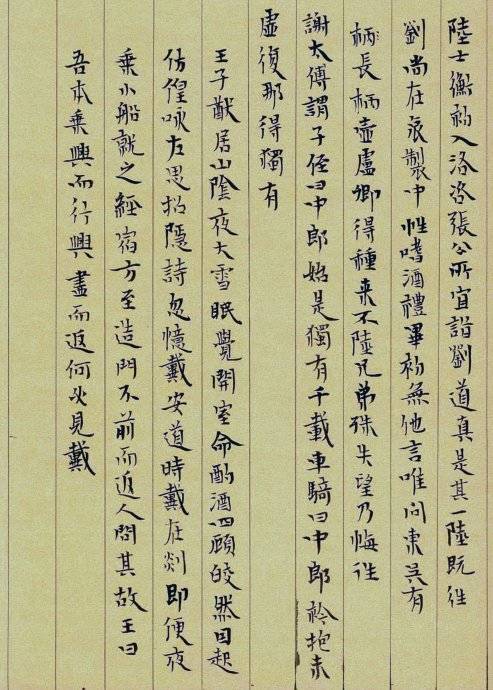 陸士衡初入洛咨張公所宜詣劉道真是其一陸既往
劉尚在哀製中性嗜酒禮畢初無他言唯問東吳有
柄長柄壺盧卿得種来不陸兄弟殊失望乃悔往
謝太傅謂子侄曰中郎始是獨有千載車騎曰中郎衿抱未
虛復那得獨有
王子猷居山陰夜大雪眠覺開室命酌酒四顧皎然因起
仿徨咏左思招隱詩忽憶戴安道時戴在剡即便夜
乘小船就之經宿方至造門不前而返人問其故王曰
吾本乘興而行興盡而返何必見戴